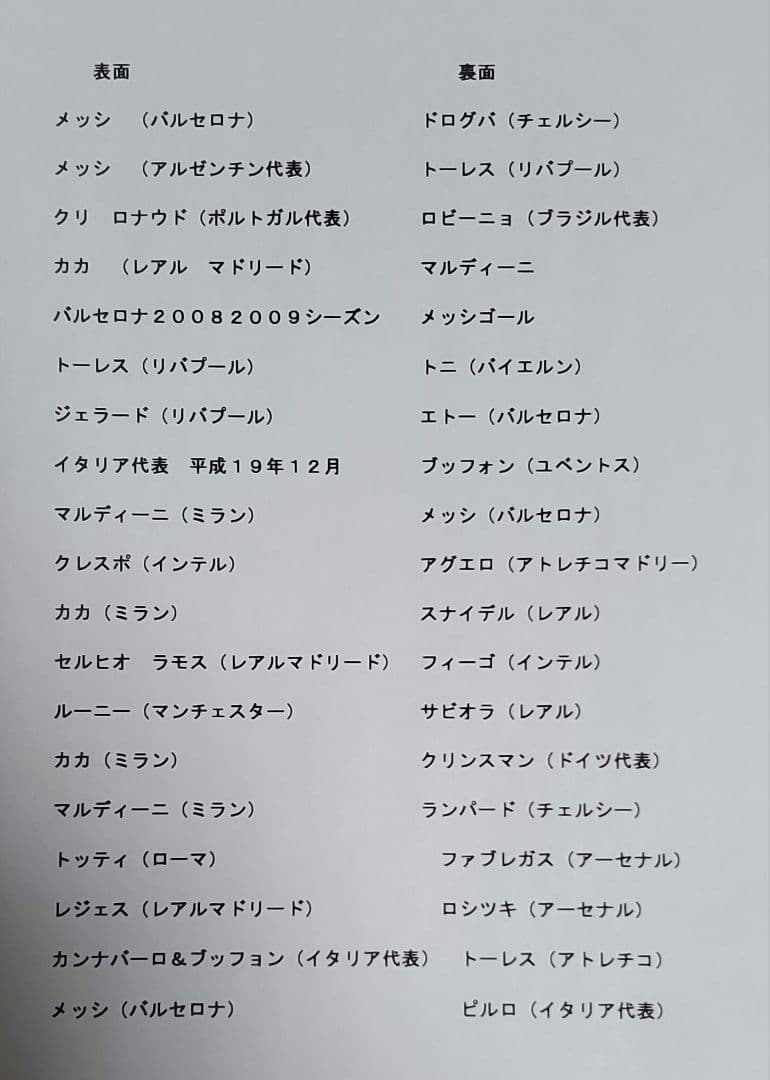 表面　裏面
メッシ　（バルセロナ）　ドログバ（チェルシー）
メッシ　（アルゼンチン代表）　トーレス（リバプール）
クリ　ロナウド（ポルトガル代表）　ロビーニョ（ブラジル代表）
カカ　（レアル　マドリード）　マルディーニ
バルセロナ２００８２００９シーズン　メッシゴール
トーレス（リバプール）　トニ（バイエルン）
ジェラード（リバプール）　エトー（バルセロナ）
イタリア代表　平成１９年１２月　ブッフォン（ユベントス）
マルディーニ（ミラン）　メッシ（バルセロナ）
クレスポ（インテル）　アグエロ（アトレチコマドリー）
カカ（ミラン）　スナイデル（レアル）
セルヒオ　ラモス（レアルマドリード）　フィーゴ（インテル）
ルーニー（マンチェスター）　サビオラ（レアル）
カカ（ミラン）　クリンスマン（ドイツ代表）
マルディーニ（ミラン）　ランパード（チェルシー）
トッティ（ローマ）　ファブレガス（アーセナル）
レジェス（レアルマドリード）　ロシツキ（アーセナル）
カンナバーロ＆ブッフォン（イタリア代表）　トーレス（アトレチコ）
メッシ（バルセロナ）　ピルロ（イタリア代表）